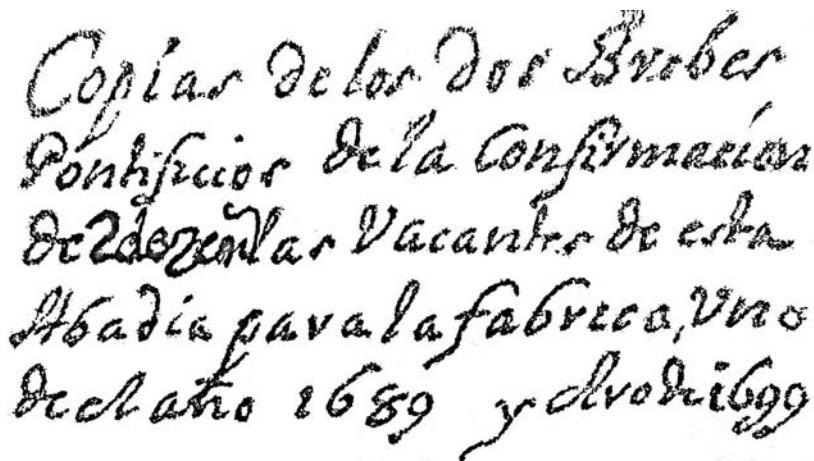 Copias de los dos Brebes
Pontificios de la Confirmacion
de las Vacantes de esta
Abadia para la fabrica, Uno
de el año 1689 y otro de 1699